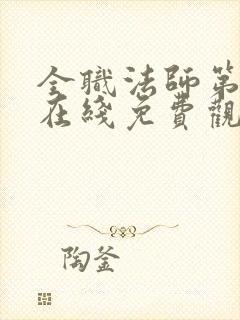 全職法師第
在綫免費觀
陶釜